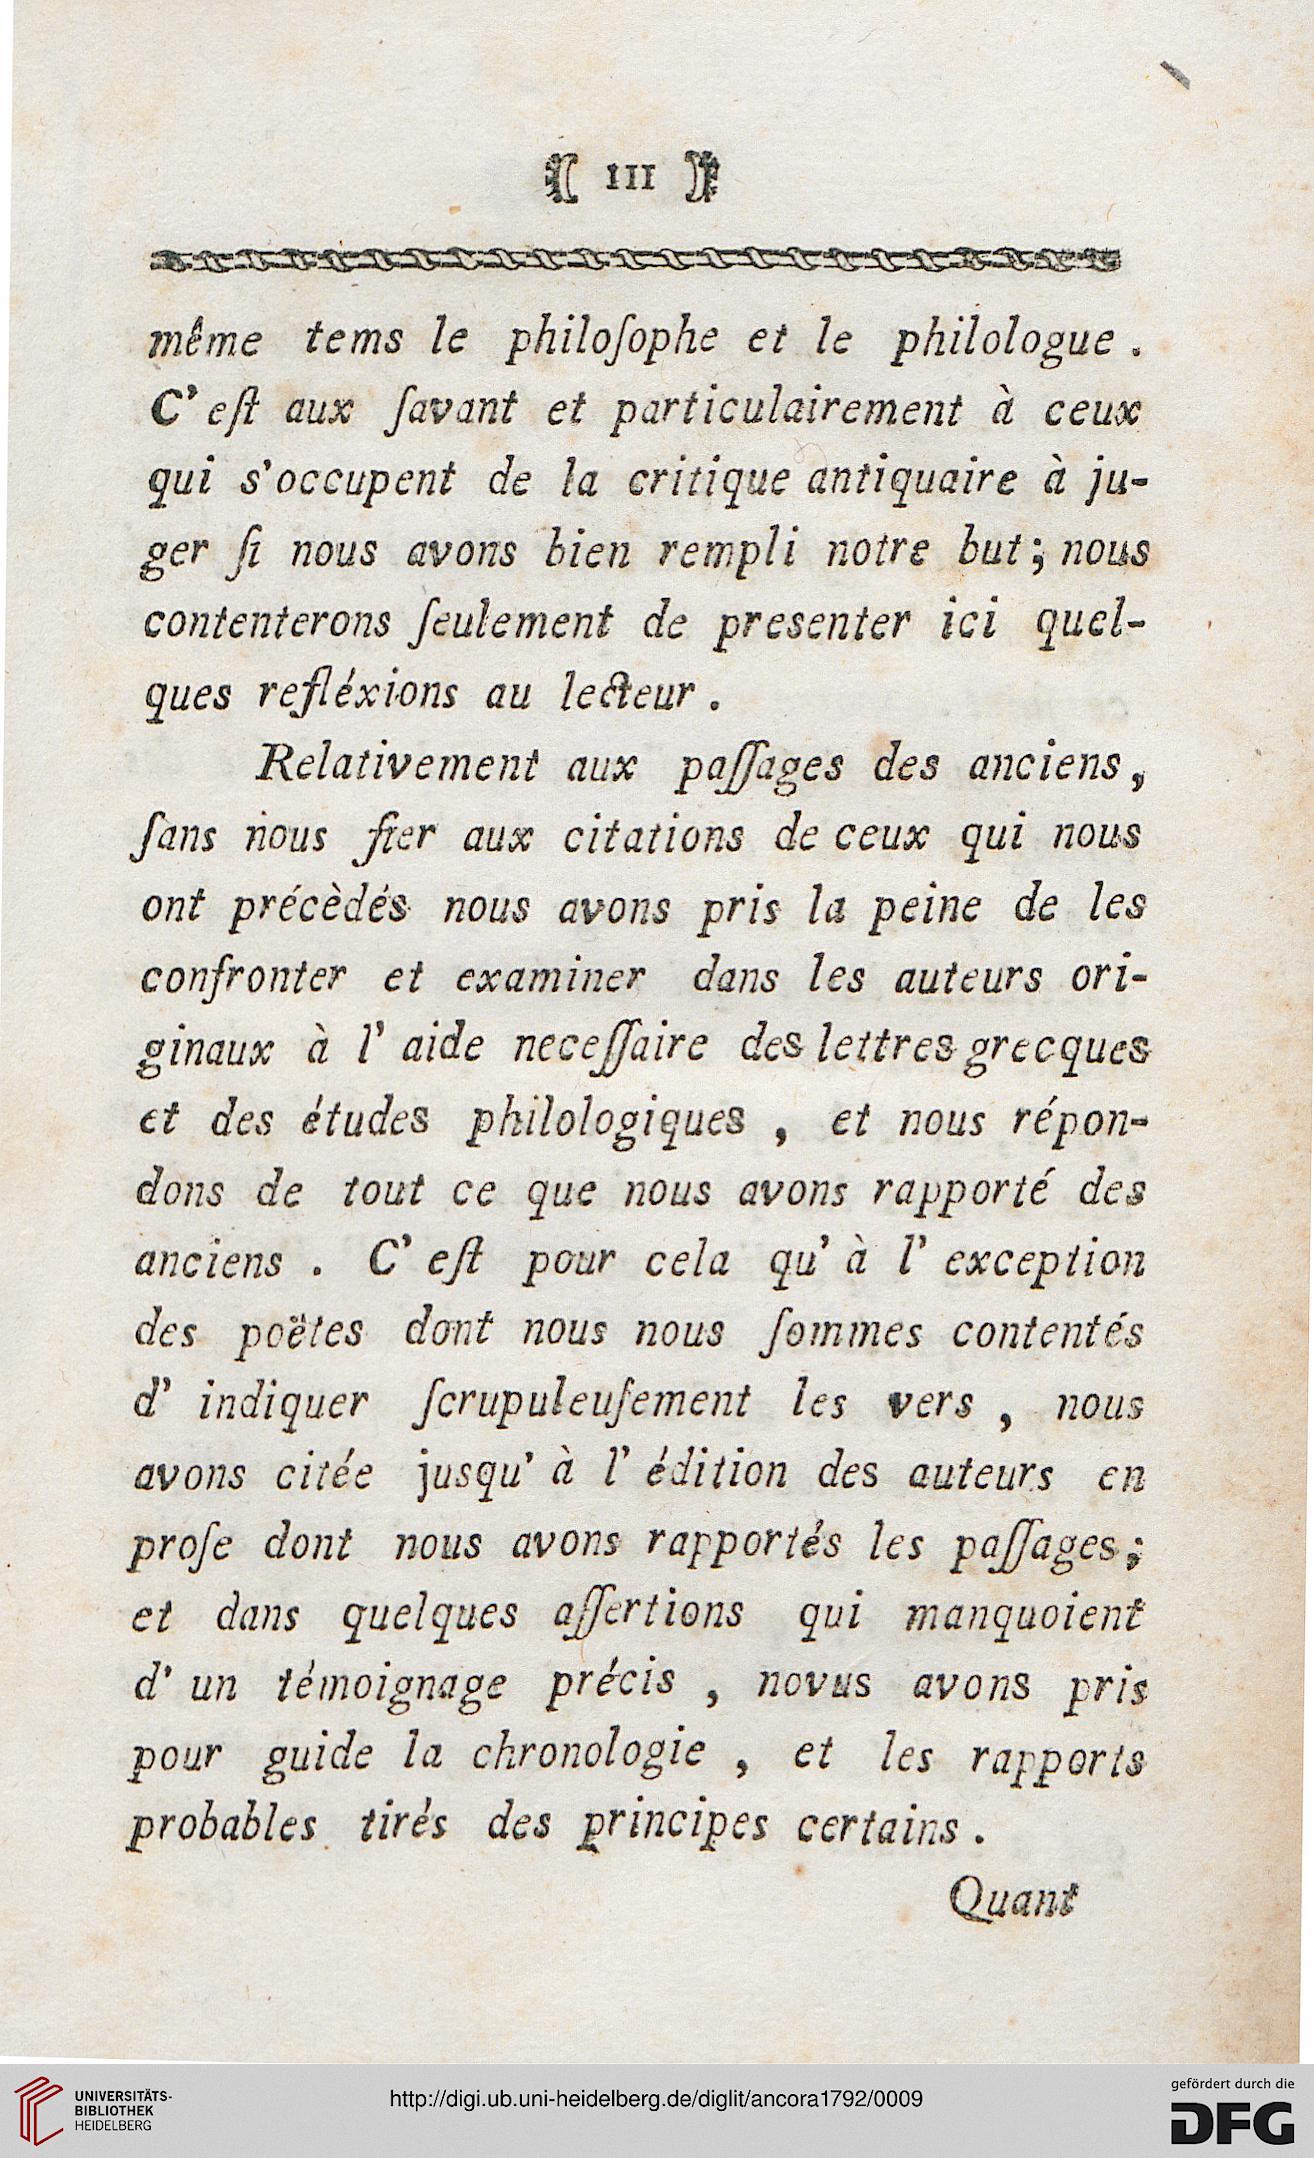 III
même tems le philoſophe et le philologue .
C' eſt aux ſavant et particulairement à ceux
qui s'occupent de la critique antiquaire à ju-
ger ſi nous avons bien rempli notre but ; nous
contenterons ſeulement de presenter ici quel-
ques refléxions au lecteur .
Relativement aux paſſages des anciens ,
ſans nous fier aux citations de ceux qui nous
ont précèdés nous avons pris la peine de les
confronter et examiner dans les auteurs ori-
ginaux à l' aide neceſſaire des lettres grecques
et des études philologiques , et nous répon-
dons de tout ce que nous avons rapporté des
anciens . C' eſt pour cela qu' à l' exception
des poëtes dont nous nous ſommes contentés
d' indiquer ſcrupuleuſement les vers , nous
avons citée jusqu' à l' édition des auteurs en
proſe dont nous avons rapportés les paſſages ;
et dans quelques aſſertions qui manquoient
d' un témoignage précis , novus avons pris
pour guide la chronologie , et les rapports
probables tirés des principes certains .
Quant
UNIVERSITÄTS-
BIBLIOTHEK
HEIDELBERG
http://digi.ub.uni-heidelberg.de/diglit/ancora1792/0009
gefördert durch die
DFG